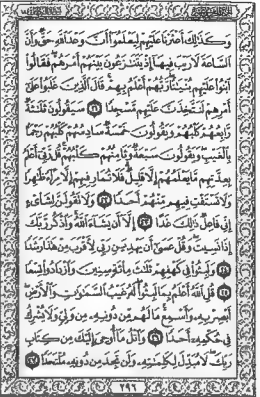 وَكَذَٰلِكَ أَعْثَرْنَا عَلَيْهِمْ لِيَعْلَمُوٓا۟ أَنَّ وَعْدَ ٱللَّهِ حَقٌّ وَأَنَّ
ٱلسَّاعَةَ لَا رَيْبَ فِيهَآ إِذْ يَتَنَٰزَعُونَ بَيْنَهُمْ أَمْرَهُمْ فَقَالُوا۟
ٱبْنُوا۟ عَلَيْهِم بُنْيَٰنًا رَّبُّهُمْ أَعْلَمُ بِهِمْ قَالَ ٱلَّذِينَ غَلَبُوا۟ عَلَىٰٓ
أَمْرِهِمْ لَنَتَّخِذَنَّ عَلَيْهِم مَّسْجِدًا ٢١ سَيَقُولُونَ ثَلَٰثَةٌ
رَّابِعُهُمْ كَلْبُهُمْ وَيَقُولُونَ خَمْسَةٌ سَادِسُهُمْ كَلْبُهُمْ رَجْمًۢا
بِٱلْغَيْبِ وَيَقُولُونَ سَبْعَةٌ وَثَامِنُهُمْ كَلْبُهُمْ قُل رَّبِّىٓ أَعْلَمُ
بِعِدَّتِهِم مَّا يَعْلَمُهُمْ إِلَّا قَلِيلٌ فَلَا تُمَارِ فِيهِمْ إِلَّا مِرَآءً ظَٰهِرًا
وَلَا تَسْتَفْتِ فِيهِم مِّنْهُمْ أَحَدًا ٢٢ وَلَا تَقُولَنَّ لِشَا۟ىْءٍ
إِنِّى فَاعِلٌ ذَٰلِكَ غَدًا ٢٣ إِلَّآ أَن يَشَآءَ ٱللَّهُ وَٱذْكُر رَّبَّكَ
إِذَا نَسِيتَ وَقُلْ عَسَىٰٓ أَن يَهْدِيَنِ رَبِّى لِأَقْرَبَ مِنْ هَٰذَا رَشَدًا
٢٤ وَلَبِثُوا۟ فِى كَهْفِهِمْ ثَلَٰثَ مِا۟ئَةٍ سِنِينَ وَٱزْدَادُوا۟ تِسْعًا
٢٥ قُلِ ٱللَّهُ أَعْلَمُ بِمَا لَبِثُوا۟ لَهُۥ غَيْبُ ٱلسَّمَٰوَٰتِ وَٱلْأَرْضِ
أَبْصِرْ بِهِۦ وَأَسْمِعْ مَا لَهُم مِّن دُونِهِۦ مِن وَلِىٍّ وَلَا يُشْرِكُ
فِى حُكْمِهِۦٓ أَحَدًا ٢٦ وَٱتْلُ مَآ أُوحِىَ إِلَيْكَ مِن كِتَابِ
رَبِّكَ لَا مُبَدِّلَ لِكَلِمَٰتِهِۦ وَلَن تَجِدَ مِن دُونِهِۦ مُلْتَحَدًا ٢٧
٢٩٦